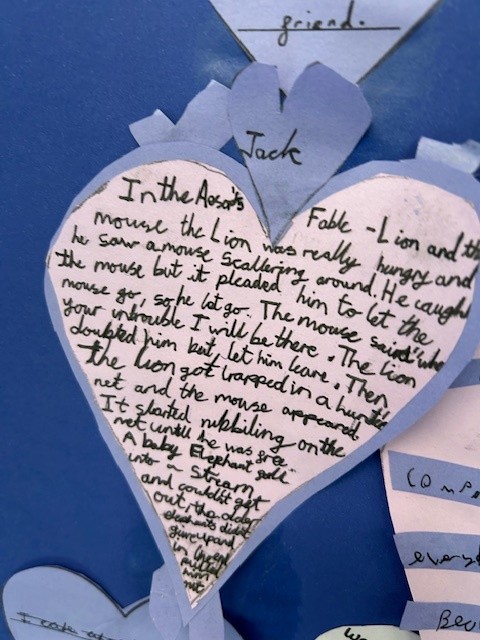 friend.
Jack
In the Aesop's
Fable - Lion and th
mouse the Lion was really hungry and
he saw a mouse Scattering around. He caught
the mouse but it pleaded him to let the
mouse go, so he let go. The mouse said "whe
your in trouble I will be there. The lion
doubted him but let him leave. Then
the lion got trapped in a hunte
net and the mouse appeared.
It started nubbiling on the
net until he was free.
A baby Elephant fell
into a Stream
and couldn't get
out, the older
elephants didn't
give up and
in
pulled
him
out
comp
every
Be
We
I